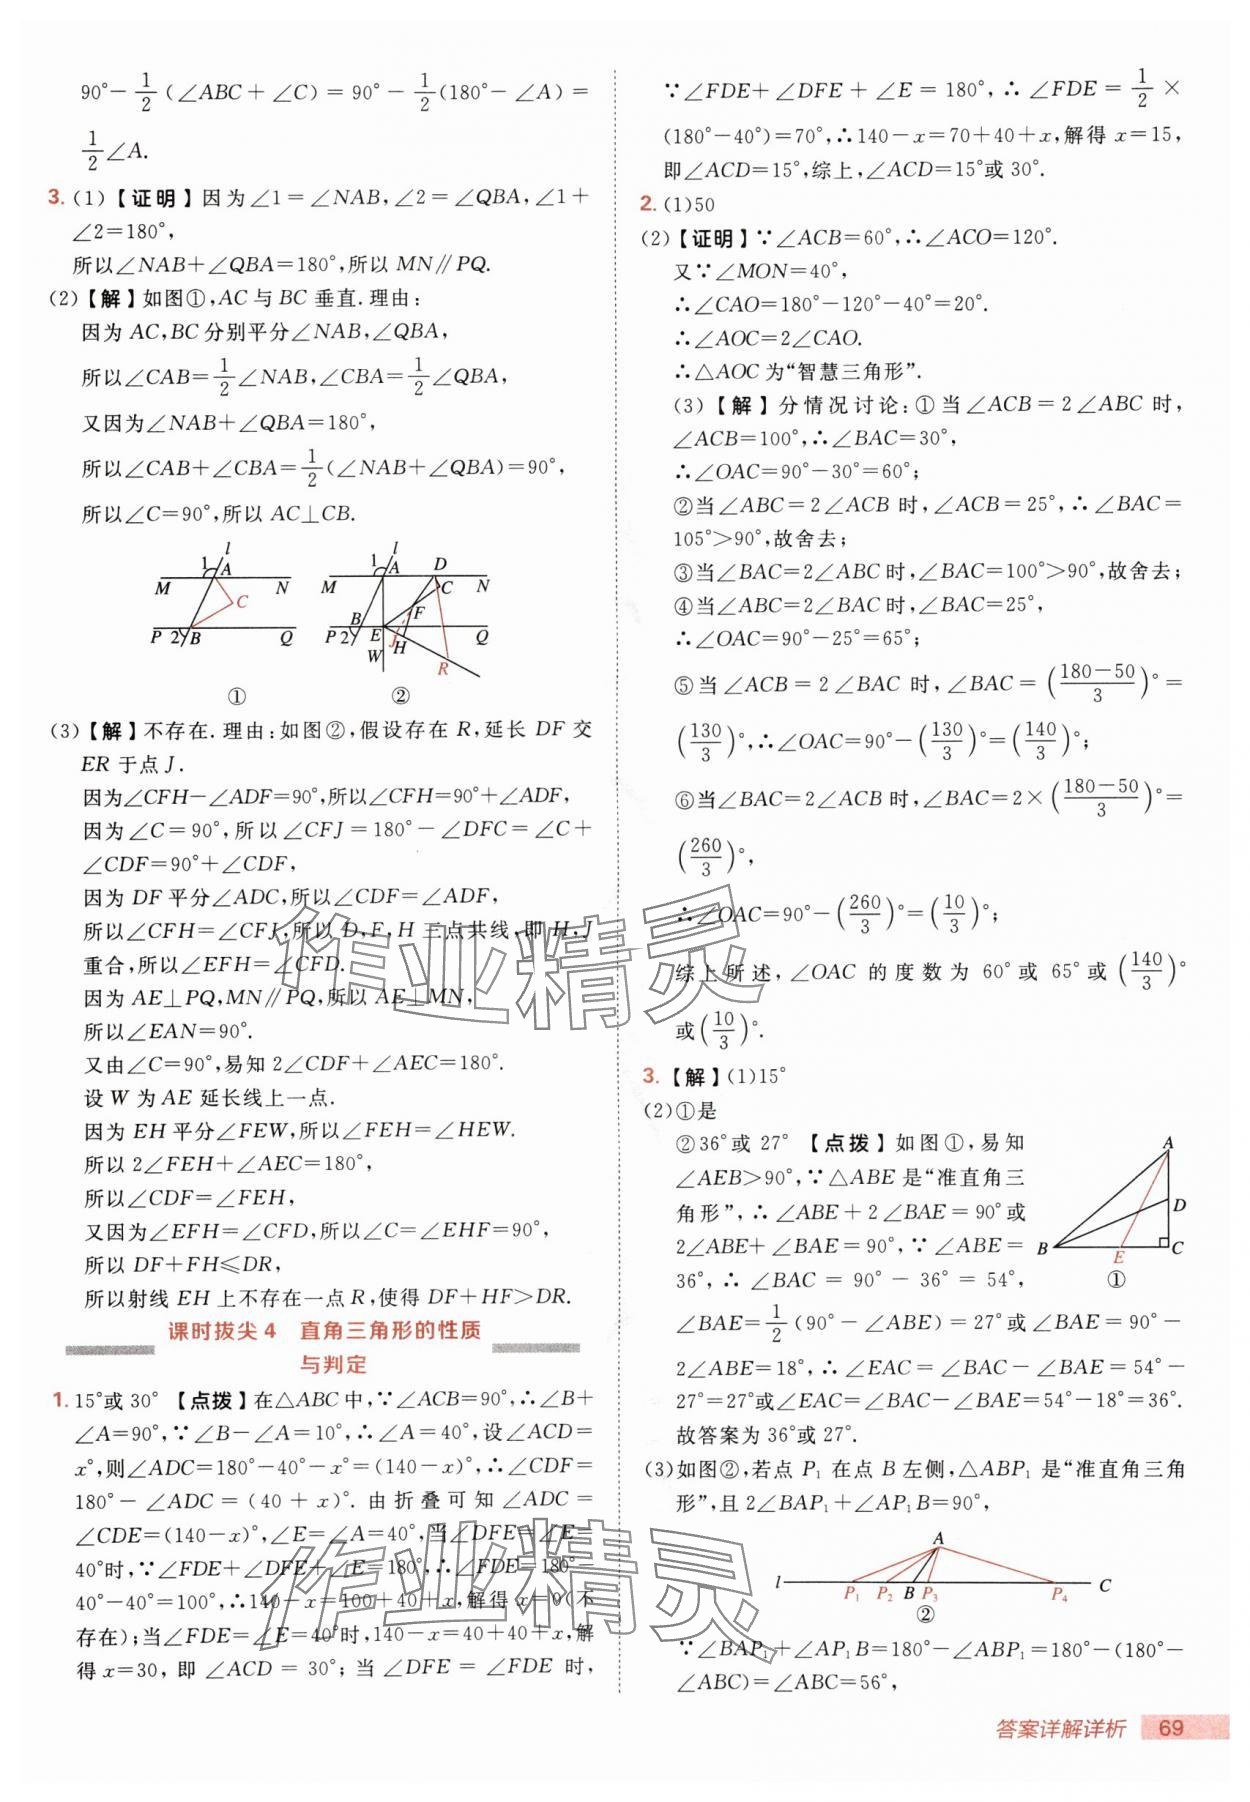 90°－1/2（∠ABC＋∠C）＝90°－1/2(180°－∠A)＝
1/2∠A.
3. (1)【证明】因为∠1＝∠NAB,∠2＝∠QBA,∠1＋
∠2＝180°,
所以∠NAB＋∠QBA＝180°,所以 MN∥PQ.
(2)【解】如图①,AC 与 BC 垂直.理由：
因为 AC,BC 分别平分∠NAB,∠QBA,
所以∠CAB＝1/2∠NAB,∠CBA＝1/2∠QBA,
又因为∠NAB＋∠QBA＝180°,
所以∠CAB＋∠CBA＝1/2(∠NAB＋∠QBA)＝90°,
所以∠C＝90°,所以 AC⊥CB.
l
1 A
M N
C
P 2 B Q
①
l
1 A D
M C N
B F
P 2 E J H Q
W R
②
(3)【解】不存在.理由：如图②,假设存在 R,延长 DF 交
ER 于点 J.
因为∠CFH－∠ADF＝90°,所以∠CFH＝90°＋∠ADF,
因为∠C＝90°,所以∠CFJ＝180°－∠DFC＝∠C＋
∠CDF＝90°＋∠CDF,
因为 DF 平分∠ADC,所以∠CDF＝∠ADF,
所以∠CFH＝∠CFJ,所以 D,F,H 三点共线,即 H,J
重合,所以∠EFH＝∠CFD.
因为 AE⊥PQ,MN∥PQ,所以 AE⊥MN,
所以∠EAN＝90°.
又由∠C＝90°,易知 2∠CDF＋∠AEC＝180°.
设 W 为 AE 延长线上一点.
因为 EH 平分∠FEW,所以∠FEH＝∠HEW.
所以 2∠FEH＋∠AEC＝180°,
所以∠CDF＝∠FEH,
又因为∠EFH＝∠CFD,所以∠C＝∠EHF＝90°,
所以 DF＋FH≤DR,
所以射线 EH 上不存在一点 R,使得 DF＋HF＞DR.
课时拔尖 4 直角三角形的性质
与判定
1. 15°或 30° 【点拨】在△ABC 中,∵∠ACB＝90°,∴∠B＋
∠A＝90°,∵∠B－∠A＝10°,∴∠A＝40°,设∠ACD＝
x°,则∠ADC＝180°－40°－x°＝(140－x)°,∴∠CDF＝
180°－∠ADC＝(40＋x)°.由折叠可知∠ADC＝
∠CDE＝(140－x)°,∠E＝∠A＝40°,当∠DFE＝∠E＝
40°时,∵∠FDE＋∠DFE＋∠E＝180°,∴∠FDE＝180°－
40°－40°＝100°,∴140－x＝100＋40＋x,解得 x＝0(不
存在)；当∠FDE＝∠E＝40°时,140－x＝40＋40＋x,解
得 x＝30,即∠ACD＝30°；当∠DFE＝∠FDE 时,
∵∠FDE＋∠DFE＋∠E＝180°,∴∠FDE＝1/2×
(180°－40°)＝70°,∴140－x＝70＋40＋x,解得 x＝15,
即∠ACD＝15°,综上,∠ACD＝15°或 30°.
2. (1)50
(2)【证明】∵∠ACB＝60°,∴∠ACO＝120°.
又∵∠MON＝40°,
∴∠CAO＝180°－120°－40°＝20°.
∴∠AOC＝2∠CAO.
∴△AOC 为“智慧三角形”.
(3)【解】分情况讨论：①当∠ACB＝2∠ABC 时,
∠ACB＝100°,∴∠BAC＝30°,
∴∠OAC＝90°－30°＝60°；
②当∠ABC＝2∠ACB 时,∠ACB＝25°,∴∠BAC＝
105°＞90°,故舍去；
③当∠BAC＝2∠ABC 时,∠BAC＝100°＞90°,故舍去；
④当∠ABC＝2∠BAC 时,∠BAC＝25°,
∴∠OAC＝90°－25°＝65°；
⑤当∠ACB＝2∠BAC 时,∠BAC＝((180－50)/3)°＝
(130/3)°,∴∠OAC＝90°－(130/3)°＝(140/3)°；
⑥当∠BAC＝2∠ACB 时,∠BAC＝2×((180－50)/3)°＝
(260/3)°,
∴∠OAC＝90°－(260/3)°＝(10/3)°；
综上所述,∠OAC 的度数为 60°或 65°或(140/3)°
或(10/3)°.
3.【解】(1)15°
(2)①是
②36°或 27° 【点拨】如图①,易知
∠AEB＞90°,∵△ABE 是“准直角三
角形”,∴∠ABE＋2∠BAE＝90°或
2∠ABE＋∠BAE＝90°,∵∠ABE＝
36°,∴∠BAC＝90°－36°＝54°,
A
D
B E C
①
∠BAE＝1/2(90°－∠ABE)＝27°或∠BAE＝90°－
2∠ABE＝18°,∴∠EAC＝∠BAC－∠BAE＝54°－
27°＝27°或∠EAC＝∠BAC－∠BAE＝54°－18°＝36°.
故答案为 36°或 27°.
(3)如图②,若点 P₁ 在点 B 左侧,△ABP₁ 是“准直角三角
形”,且 2∠BAP₁＋∠AP₁B＝90°,
A
l P₁ P₂ B P₃ P₄ C
②
∵∠BAP₁＋∠AP₁B＝180°－∠ABP₁＝180°－(180°－
∠ABC)＝∠ABC＝56°,
答案详解详析 69
作业精灵
作业精灵